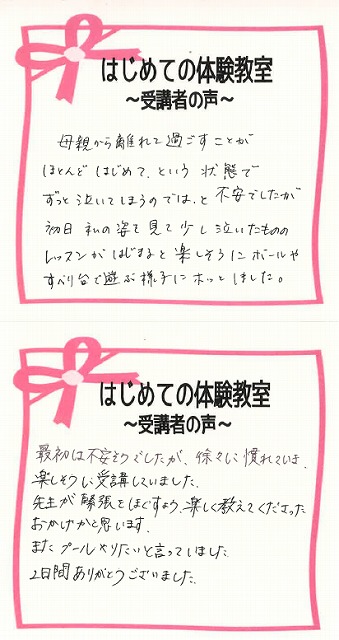 はじめての体験教室
～受講者の声～
母親から離れて過ごすことが
ほとんどはじめて、という状態で
ずっと泣いてしまうのでは、と不安でしたが
初日私の姿て見て少し泣いたものの
レッスンがはじまると楽しそうにボールや
すべり台で遊ぶ様子にホッとしました。
はじめての体験教室
～受講者の声～
最初は不安そうでしたが、徐々に慣れていき、
楽しそうに受講していました。
先生が緊張をほぐすよう、楽しく教えてくださった
おかげかと思います。
またプールやりたいと言ってしました
2日間ありがとうございました。